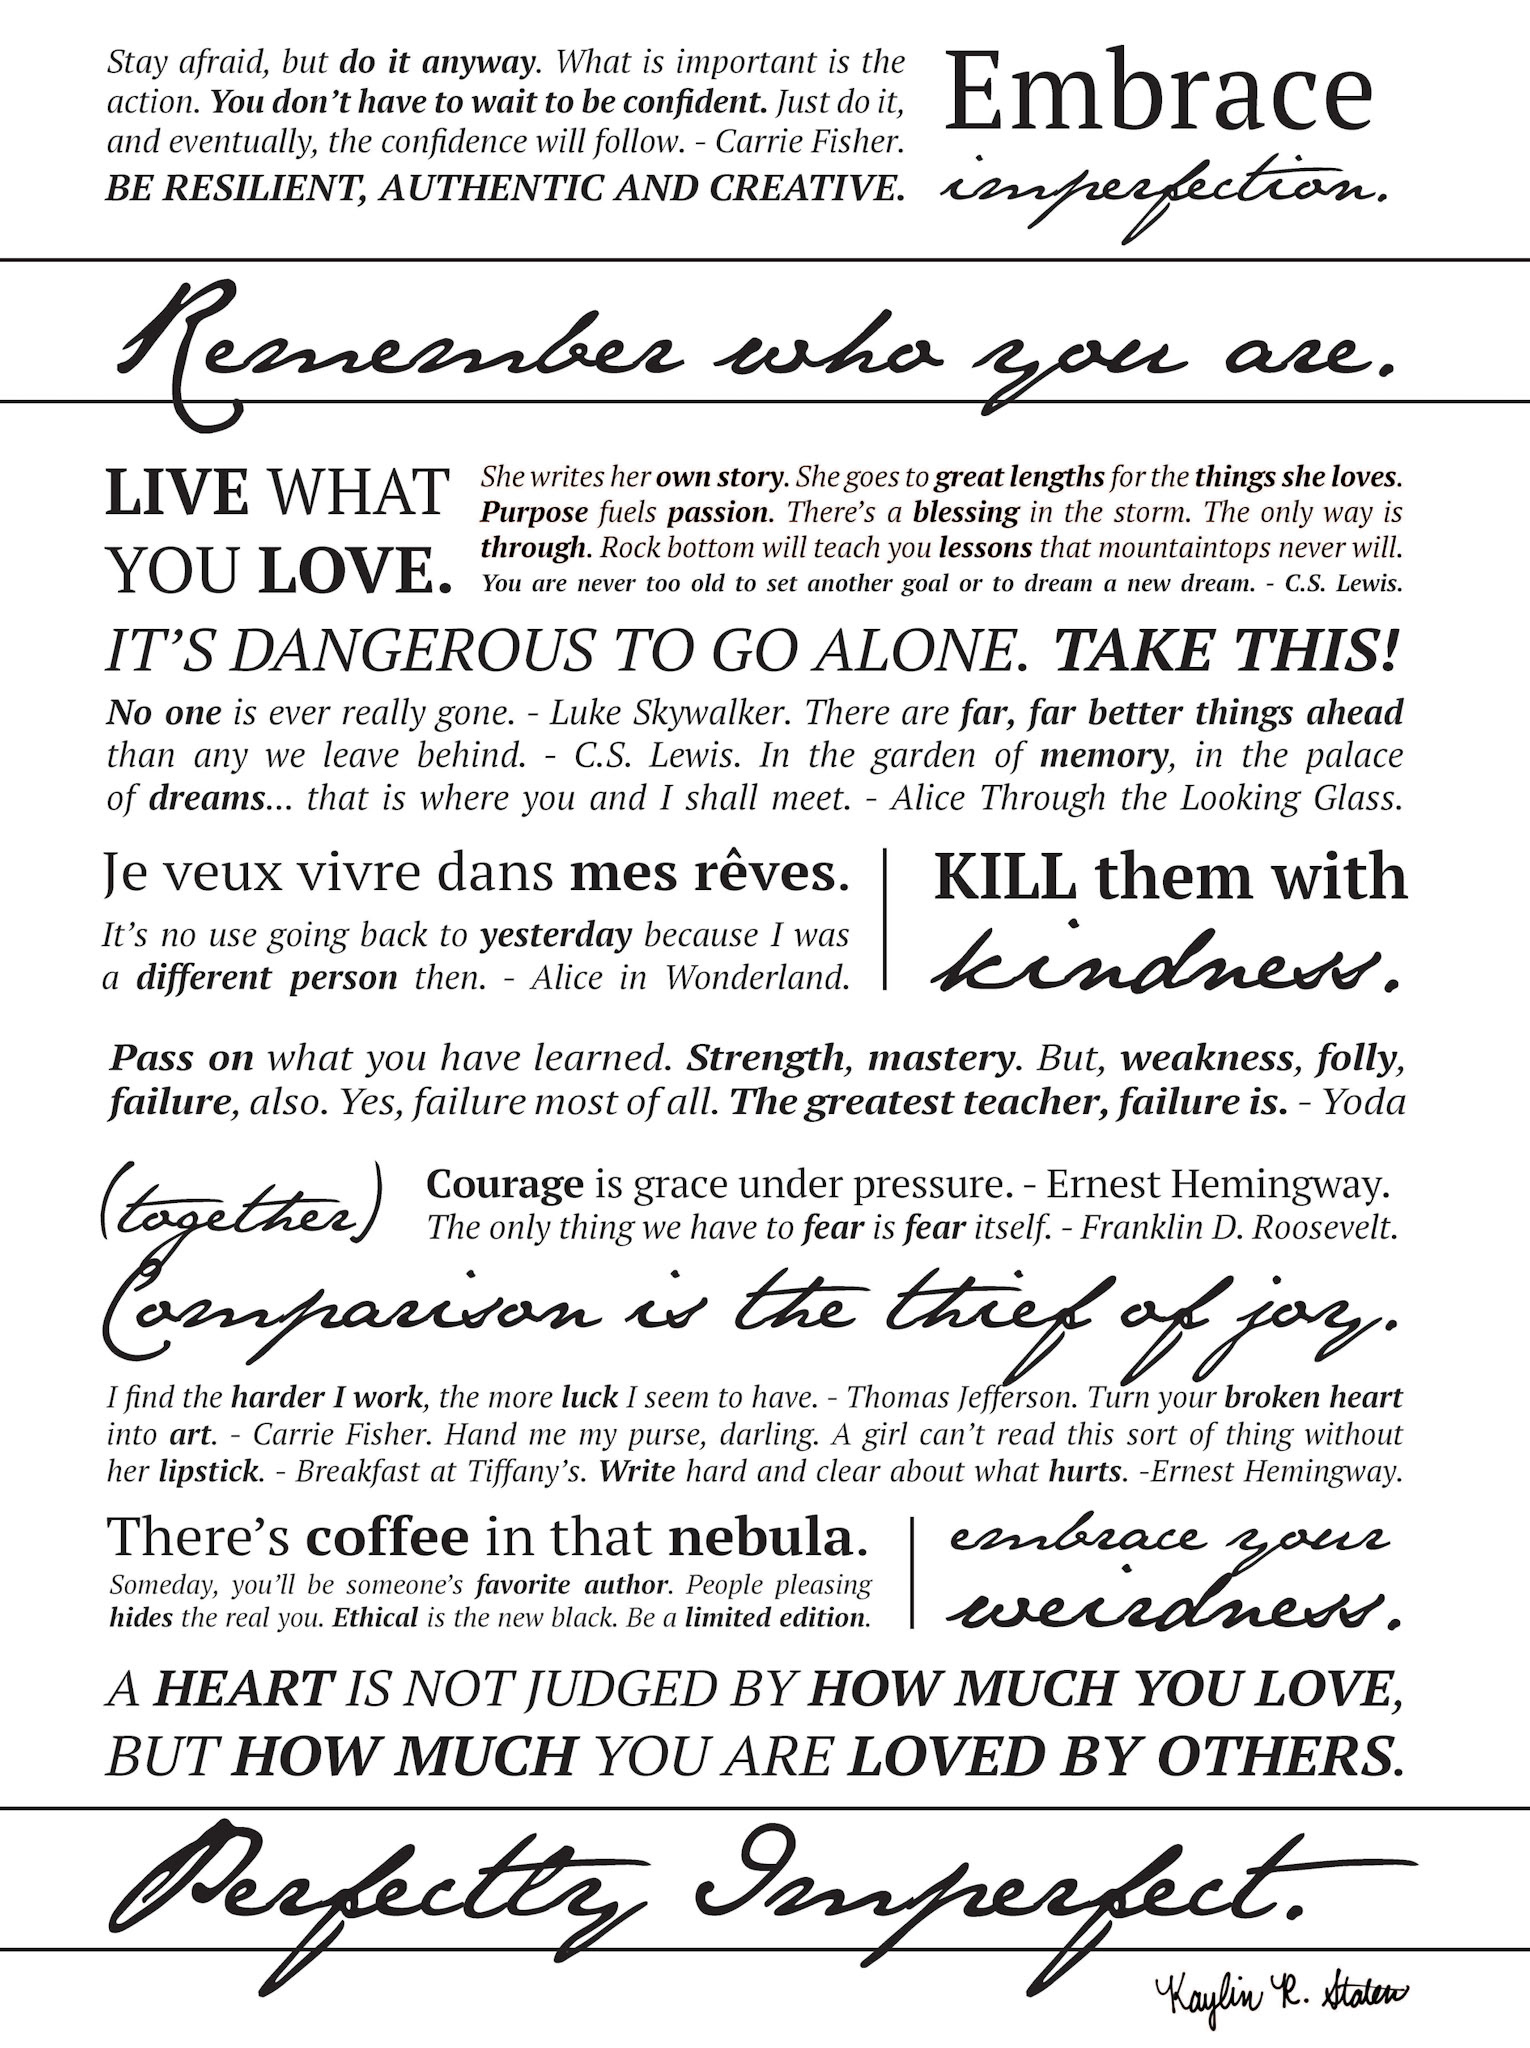 Stay afraid, but do it anyway. What is important is the
action. You don’t have to wait to be confident. Just do it,
and eventually, the confidence will follow. - Carrie Fisher.
BE RESILIENT, AUTHENTIC AND CREATIVE.
Embrace
imperfection.
Remember who you are.
LIVE WHAT
YOU LOVE.
She writes her own story. She goes to great lengths for the things she loves.
Purpose fuels passion. There’s a blessing in the storm. The only way is
through. Rock bottom will teach you lessons that mountaintops never will.
You are never too old to set another goal or to dream a new dream. - C.S. Lewis.
IT’S DANGEROUS TO GO ALONE. TAKE THIS!
No one is ever really gone. - Luke Skywalker. There are far, far better things ahead
than any we leave behind. - C.S. Lewis. In the garden of memory, in the palace
of dreams... that is where you and I shall meet. - Alice Through the Looking Glass.
Je veux vivre dans mes rêves.
It’s no use going back to yesterday because I was
a different person then. - Alice in Wonderland.
KILL them with
kindness.
Pass on what you have learned. Strength, mastery. But, weakness, folly,
failure, also. Yes, failure most of all. The greatest teacher, failure is. - Yoda
(together)
Courage is grace under pressure. - Ernest Hemingway.
The only thing we have to fear is fear itself. - Franklin D. Roosevelt.
Comparison is the thief of joy.
I find the harder I work, the more luck I seem to have. - Thomas Jefferson. Turn your broken heart
into art. - Carrie Fisher. Hand me my purse, darling. A girl can’t read this sort of thing without
her lipstick. - Breakfast at Tiffany’s. Write hard and clear about what hurts. -Ernest Hemingway.
There’s coffee in that nebula.
Someday, you’ll be someone’s favorite author. People pleasing
hides the real you. Ethical is the new black. Be a limited edition.
embrace your
weirdness.
A HEART IS NOT JUDGED BY HOW MUCH YOU LOVE,
BUT HOW MUCH YOU ARE LOVED BY OTHERS.
Perfectly Imperfect.
Kaylin R. Staten